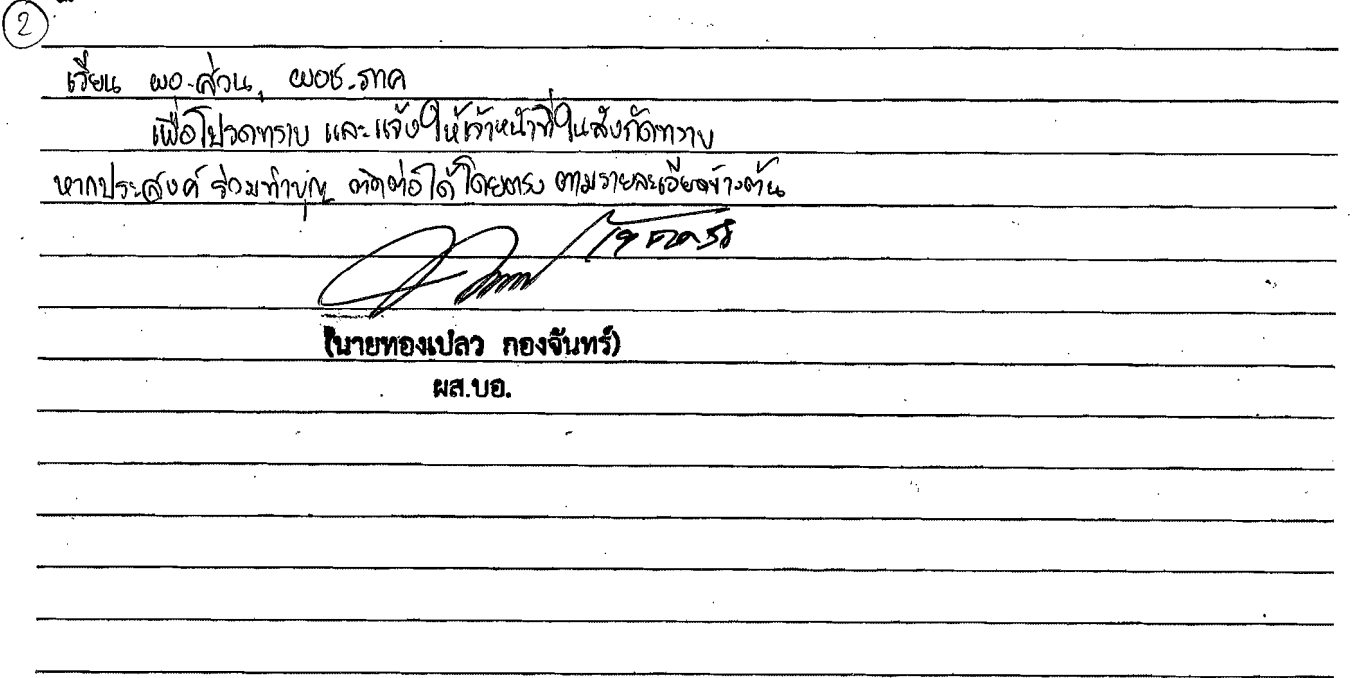 ②
เรียน ผอ.ส่วน, ผอช.ภาค
เพื่อโปรดทราบ และแจ้งให้เจ้าหน้าที่ในสังกัดทราบ
หากประสงค์ ร่วมทำบุญ ติดต่อได้โดยตรง ตามรายละเอียดข้างต้น
(นายทองเปลว กองจันทร์)
ผส.บอ.